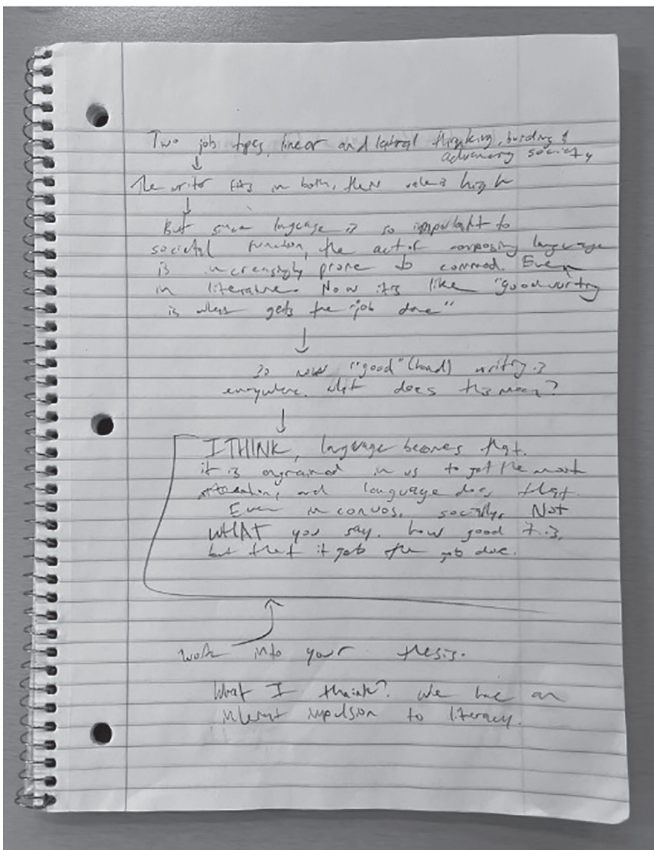 Two job types, linear and lateral thinking, building &
advancing society
↓
The writer fits in both, their value is high
↓
But since language is so important to
societal function, the act of composing language
is increasingly prone to commod. Even
in literature. Now it's like "good writing
is what gets the job done"
↓
So now "good" (bad) writing is
everywhere. What does this mean?
↓
I THINK, language becomes flat.
it is ingrained in us to get the most
attention, and language does that
Even in convos, socially, Not
WHAT you say. how good it is,
but that it gets the job done.
work into your thesis.
What I think? we have an
inherent impulsion to literacy.